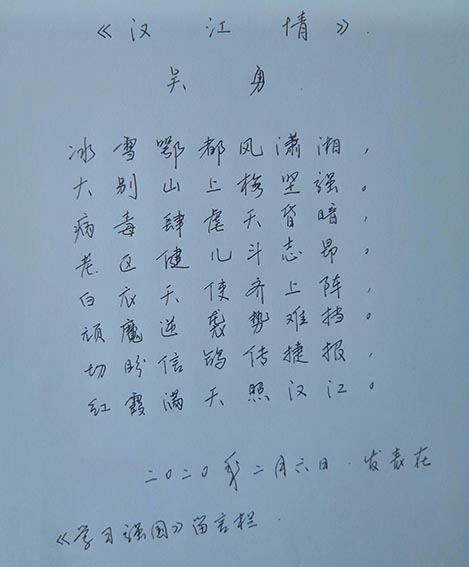 《汉江情》.
吴勇
冰雪鄂都风潇湘，
大别山上松坚强。
病毒肆虐天昏暗，
老区健儿斗志昂。
白衣天使齐上阵，
顽魔逆袭势难挡。
切盼信鸽传捷报，
红霞满天照汉江。
二〇二〇年二月六日.发表在
《学习强国》留言栏.